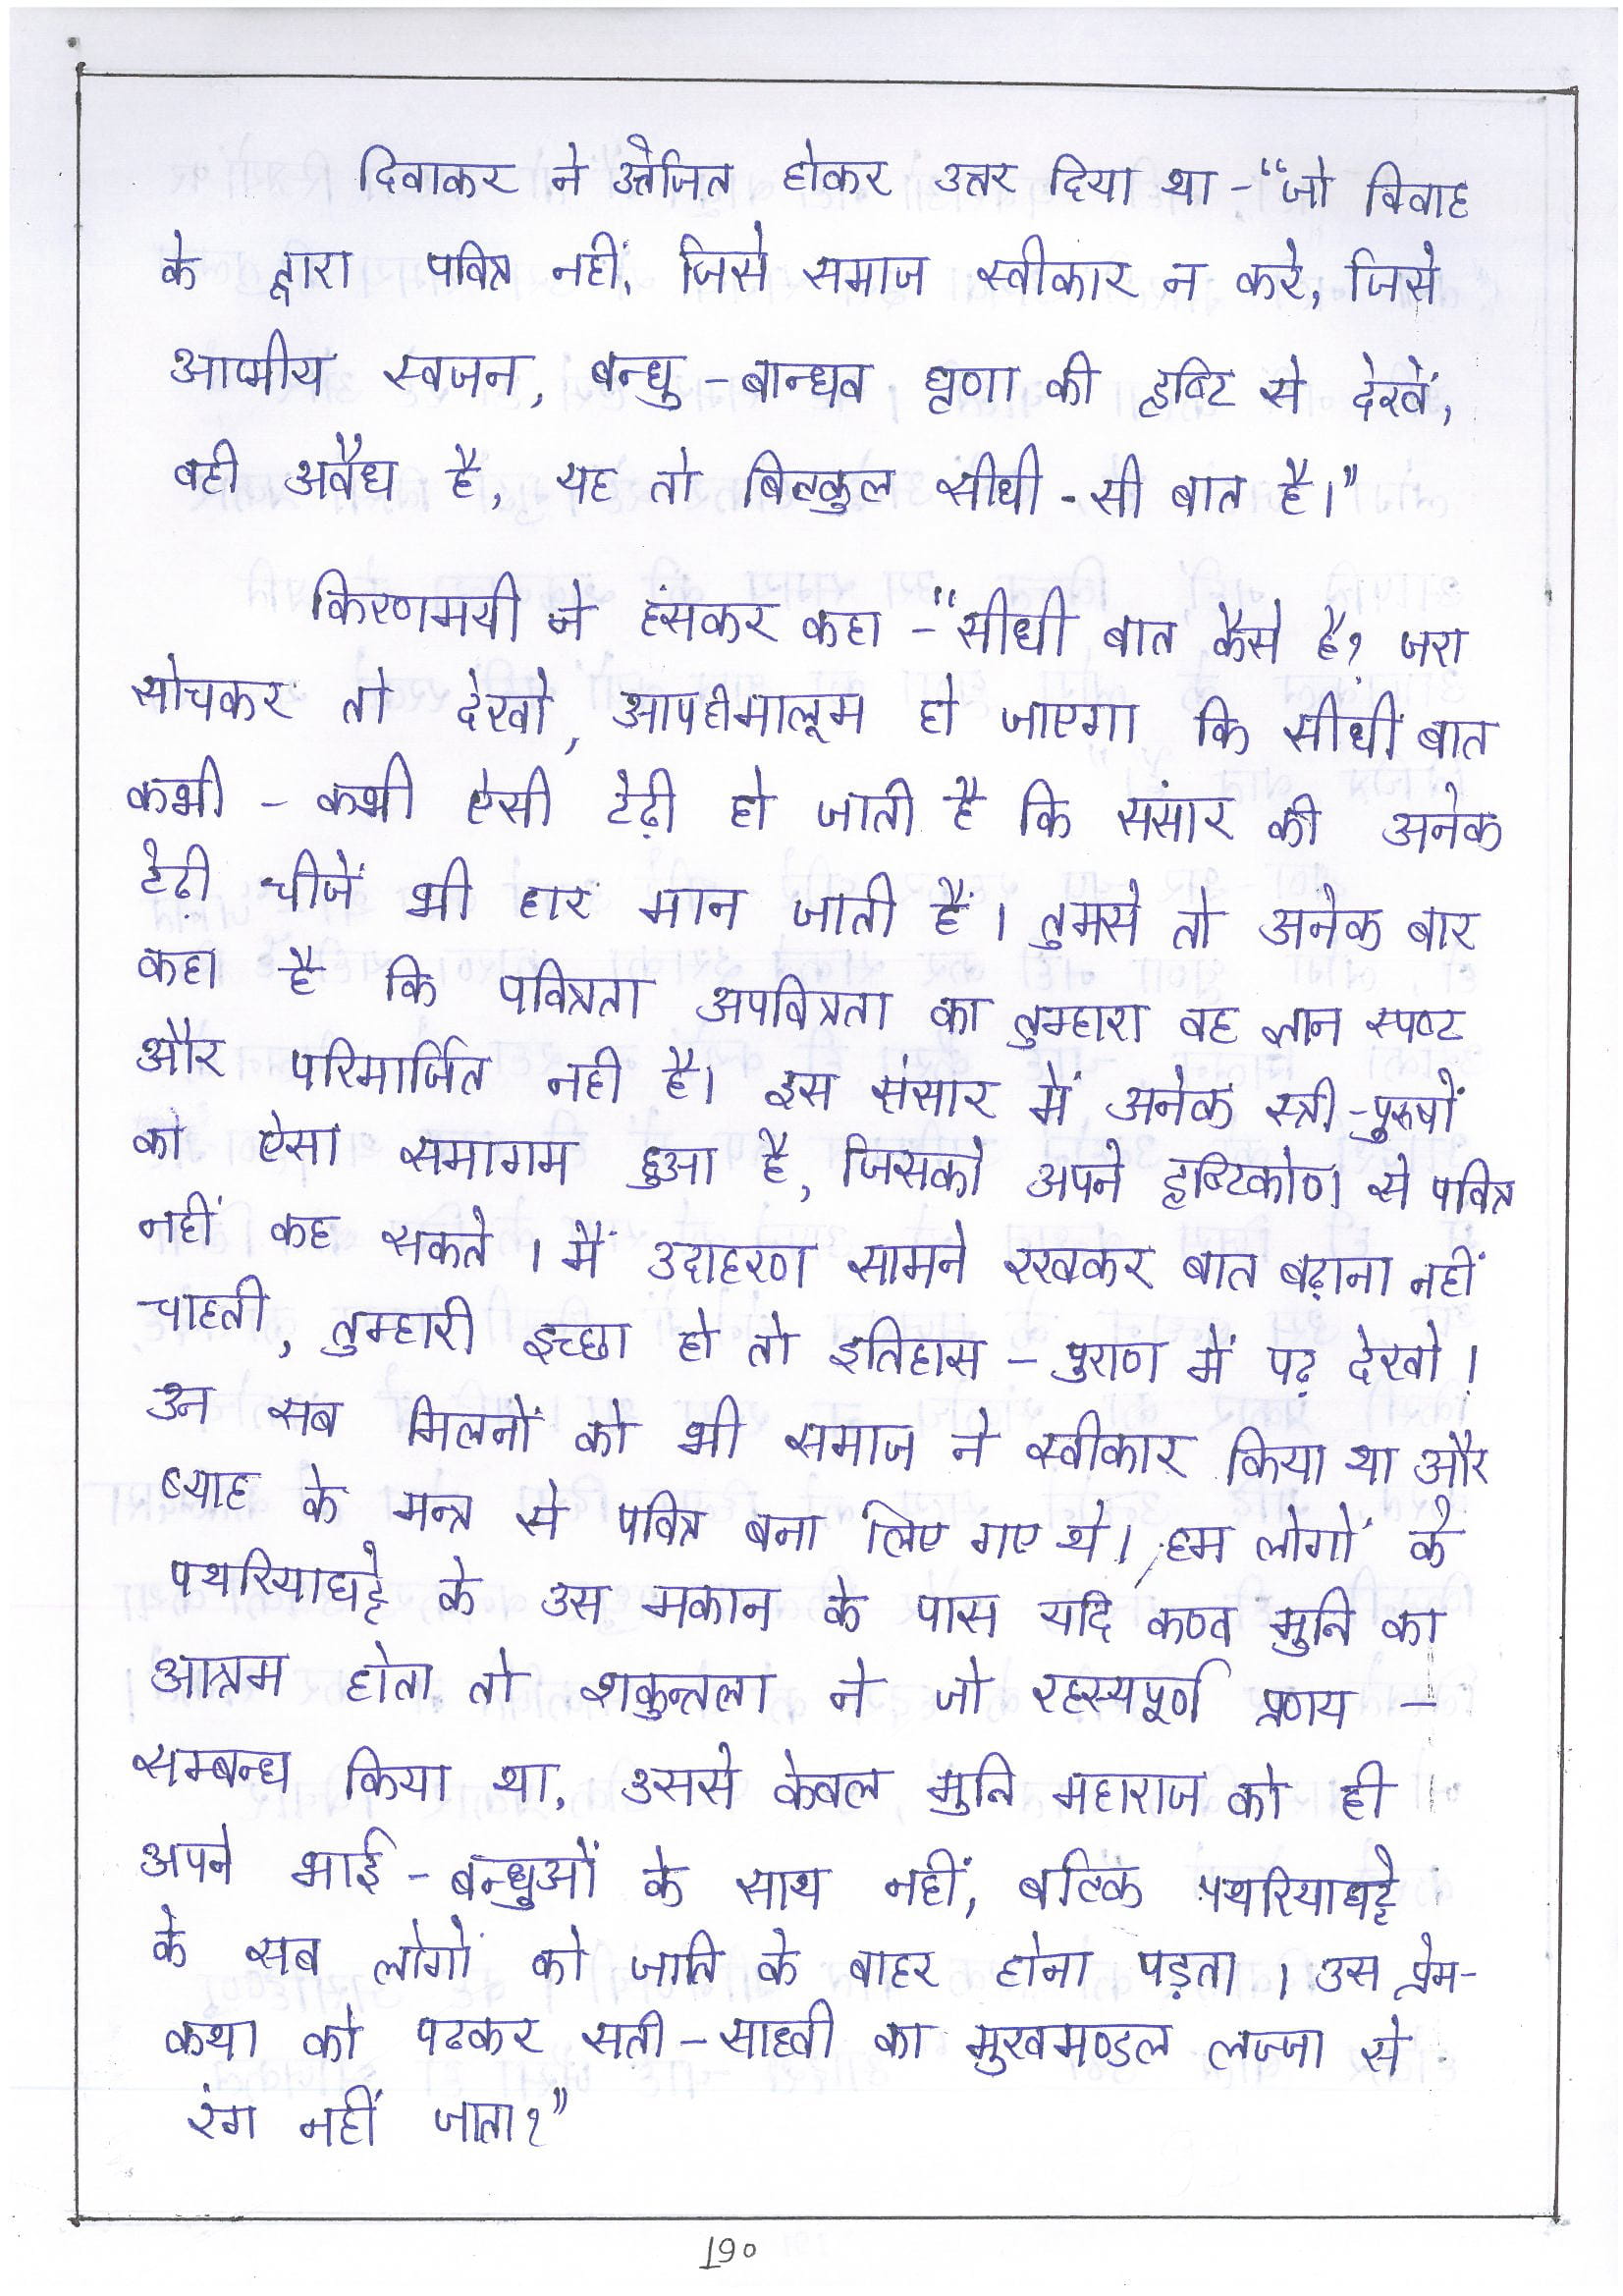 दिवाकर ने उत्तेजित होकर उत्तर दिया था -“जो विवाह
के द्वारा पवित्र नहीं, जिसे समाज स्वीकार न करे, जिसे
आत्मीय स्वजन, बन्धु - बान्धव घृणा की दृष्टि से देखें,
वही अवैध है, यह तो बिल्कुल सीधी - सी बात है।”
किरणमयी ने हंसकर कहा -“सीधी बात कैसे है? जरा
सोचकर तो देखो, आपहीमालूम हो जाएगा कि सीधी बात
कभी - कभी ऐसी टेढ़ी हो जाती है कि संसार की अनेक
टेढ़ी चीजें भी हार मान जाती हैं। तुमसे तो अनेक बार
कहा है कि पवित्रता अपवित्रता का तुम्हारा वह ज्ञान स्पष्ट
और परिमार्जित नही है। इस संसार में अनेक स्त्री-पुरुषों
को ऐसा समागम हुआ है, जिसको अपने दृष्टिकोण से पवित्र
नहीं कह सकते। मैं उदाहरण सामने रखकर बात बढ़ाना नहीं
चाहती, तुम्हारी इच्छा हो तो इतिहास - पुराण में पढ़ देखो।
उन सब मिलनों को भी समाज ने स्वीकार किया था और
ब्याह के मन्त्र से पवित्र बना लिए गए थे। हम लोगों के
पथरियाघट्टे के उस मकान के पास यदि कण्व मुनि का
आश्रम होता तो शकुन्तला ने जो रहस्यपूर्ण प्रणय -
सम्बन्ध किया था, उससे केवल मुनि महाराज को ही
अपने भाई - बन्धुओं के साथ नहीं, बल्कि पथरियाघट्टे
के सब लोगों को जाति के बाहर होना पड़ता। उस प्रेम-
कथा को पढकर सती - साध्वी का मुखमण्डल लज्जा से
रंग नहीं जाता?”
190